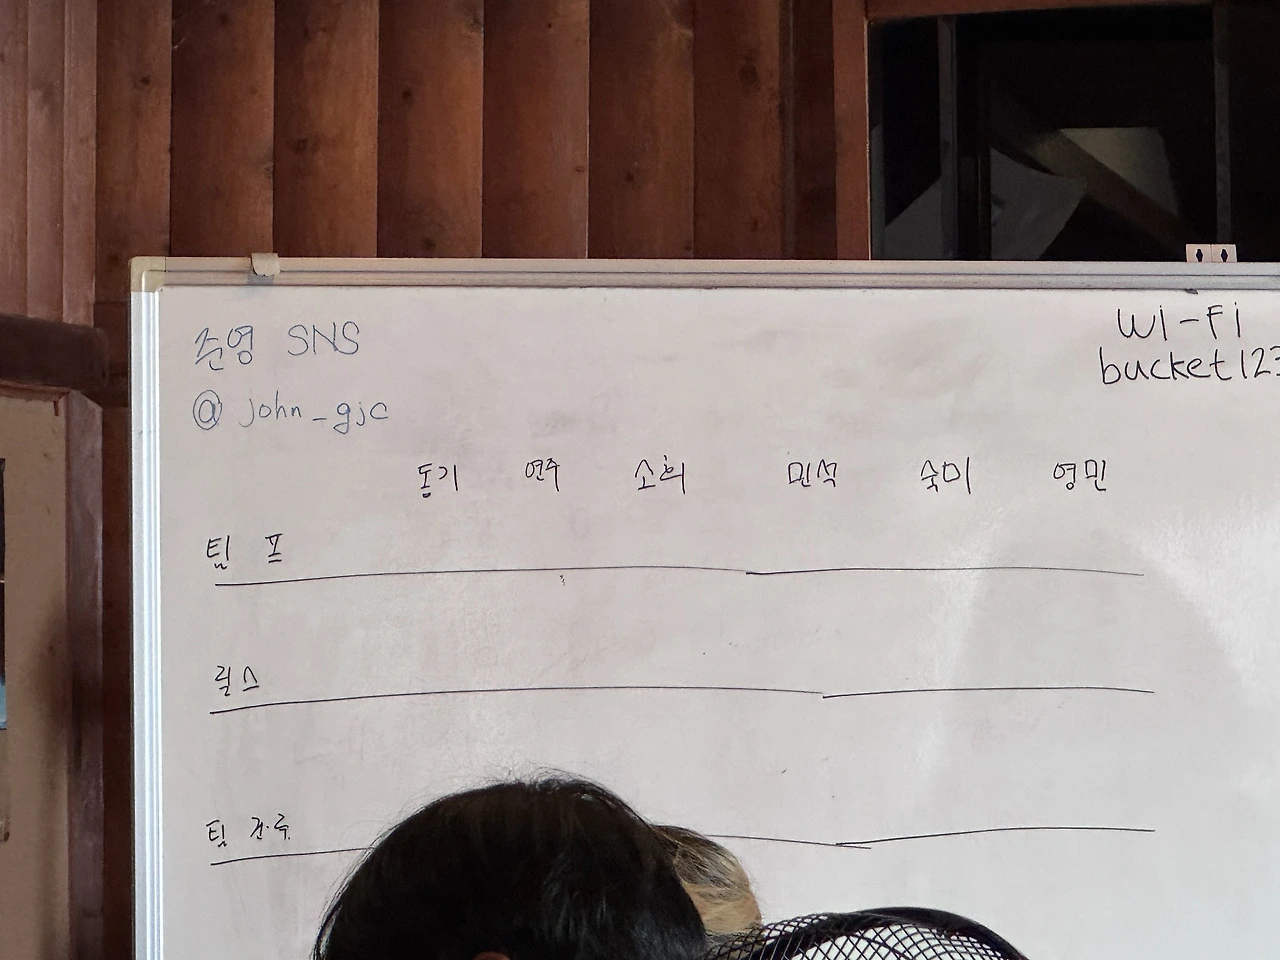 준영 SNS
@ john_gjc
Wi-Fi
bucket123
동기 연주 소희 민석 숙미 영민
팀 표
릴스
팀